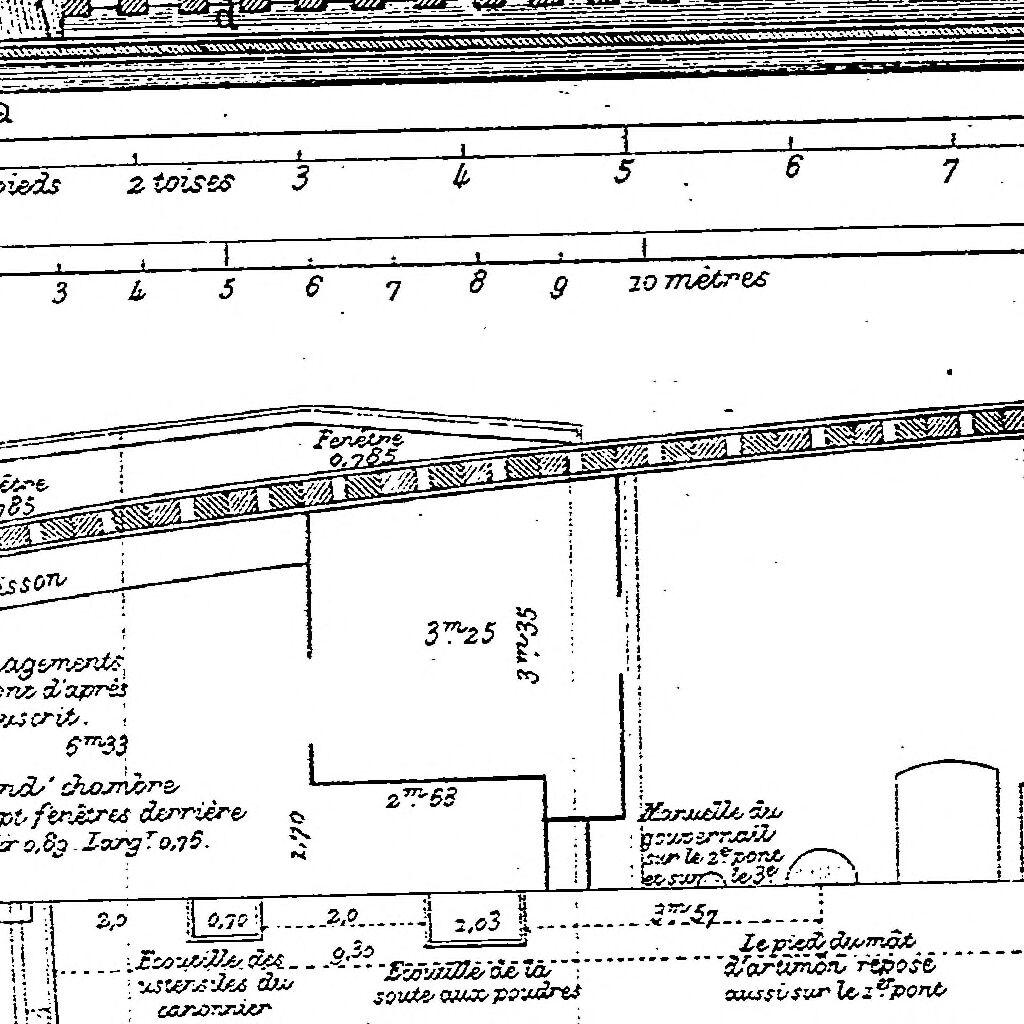 d
a
pieds 2 toises 3 4 5 6 7
3 4 5 6 7 8 9 10 mètres
Fenêtre
0,785
être
785
isson
3m25
3m35
agements
ont d'après
uscrit.
6m33
nd' chambre
pt fenêtres derrière
ur 0,89 Largr 0,75.
2m53
2,70
Manuelle du
gouvernail
sur le 2e pont
et sur le 3e
2,0
0,70
2,0
2,03
3m57
9,30
Ecoutille des
ustensiles du
canonnier
Ecoutille de la
soute aux poudres
Le pied du mât
d'artimon repose
aussi sur le 1er pont